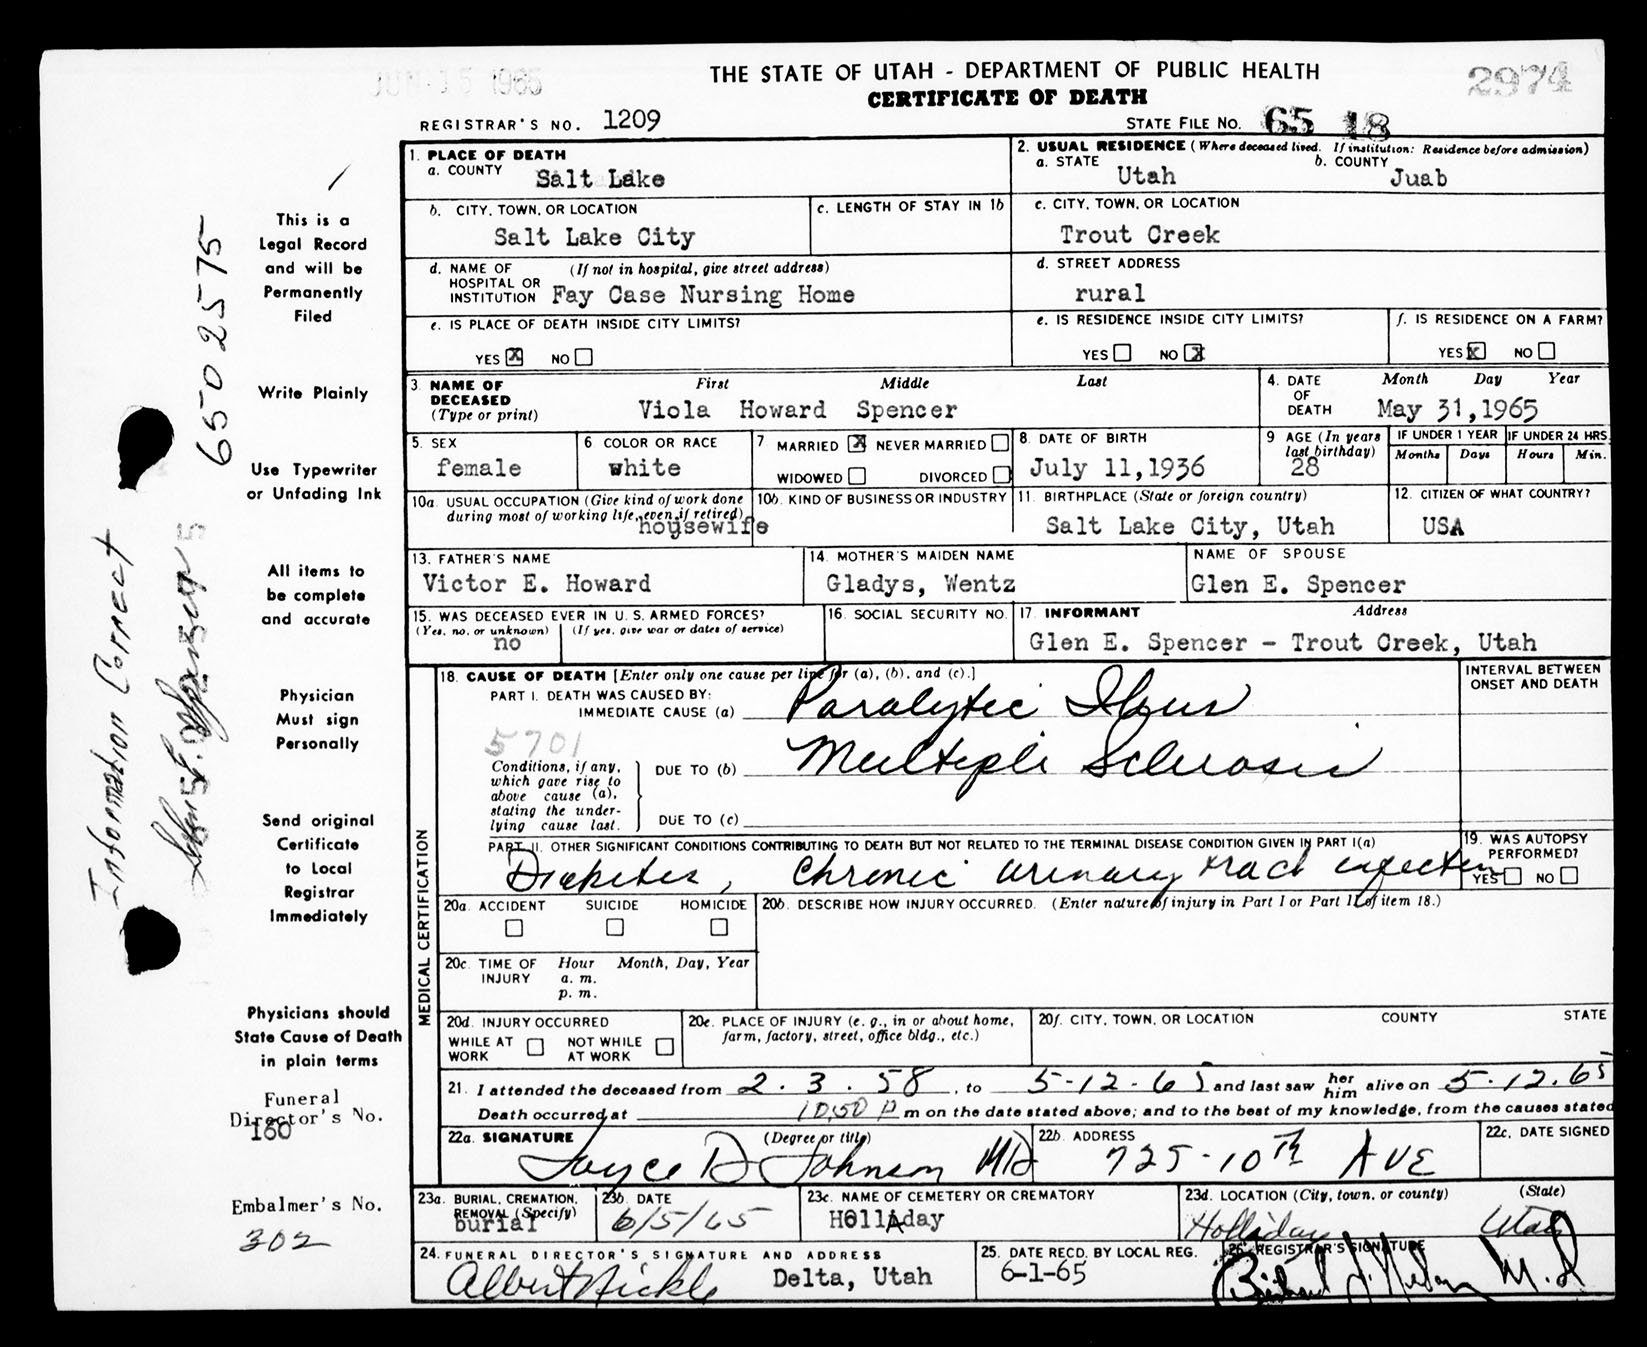 JUN 15 1965
THE STATE OF UTAH - DEPARTMENT OF PUBLIC HEALTH
2974
CERTIFICATE OF DEATH
REGISTRAR'S NO. 1209
STATE FILE NO. 65 18
1. PLACE OF DEATH
a. COUNTY Salt Lake
2. USUAL RESIDENCE (Where deceased lived. If institution: Residence before admission)
a. STATE Utah b. COUNTY Juab
b. CITY, TOWN, OR LOCATION Salt Lake City
c. LENGTH OF STAY IN 1b
c. CITY, TOWN, OR LOCATION Trout Creek
d. NAME OF HOSPITAL OR INSTITUTION (If not in hospital, give street address) Fay Case Nursing Home
d. STREET ADDRESS rural
e. IS PLACE OF DEATH INSIDE CITY LIMITS?
YES X NO
e. IS RESIDENCE INSIDE CITY LIMITS?
YES NO X
f. IS RESIDENCE ON A FARM?
YES X NO
3. NAME OF DECEASED (Type or print) First Middle Last
Viola Howard Spencer
4. DATE OF DEATH Month Day Year
May 31,1965
5. SEX female
6 COLOR OR RACE white
7 MARRIED X NEVER MARRIED
WIDOWED DIVORCED
8. DATE OF BIRTH July 11,1936
9 AGE (In years last birthday) 28
IF UNDER 1 YEAR Months Days
IF UNDER 24 HRS. Hours Min.
10a. USUAL OCCUPATION (Give kind of work done during most of working life, even if retired) housewife
10b. KIND OF BUSINESS OR INDUSTRY
11. BIRTHPLACE (State or foreign country) Salt Lake City, Utah
12. CITIZEN OF WHAT COUNTRY? USA
13. FATHER'S NAME Victor E. Howard
14. MOTHER'S MAIDEN NAME Gladys, Wentz
NAME OF SPOUSE Glen E. Spencer
15. WAS DECEASED EVER IN U. S. ARMED FORCES?
(Yes, no, or unknown) (If yes, give war or dates of service)
no
16. SOCIAL SECURITY NO.
17. INFORMANT Address
Glen E. Spencer - Trout Creek, Utah
18. CAUSE OF DEATH [Enter only one cause per line for (a), (b), and (c).]
PART I. DEATH WAS CAUSED BY:
IMMEDIATE CAUSE (a) Paralytic Ileus
5701
Conditions, if any, which gave rise to above cause (a), stating the underlying cause last.
DUE TO (b) Multiple Sclerosis
DUE TO (c)
INTERVAL BETWEEN ONSET AND DEATH
PART II. OTHER SIGNIFICANT CONDITIONS CONTRIBUTING TO DEATH BUT NOT RELATED TO THE TERMINAL DISEASE CONDITION GIVEN IN PART I(a)
Diabetes, Chronic urinary tract infection
19. WAS AUTOPSY PERFORMED?
YES NO
20a. ACCIDENT SUICIDE HOMICIDE
20b. DESCRIBE HOW INJURY OCCURRED. (Enter nature of injury in Part I or Part II of item 18.)
20c. TIME OF INJURY Hour Month, Day, Year
a. m.
p. m.
20d. INJURY OCCURRED
WHILE AT WORK NOT WHILE AT WORK
20e. PLACE OF INJURY (e. g., in or about home, farm, factory, street, office bldg., etc.)
20f. CITY, TOWN, OR LOCATION COUNTY STATE
21. I attended the deceased from 2.3.58, to 5-12-65 and last saw her him alive on 5.12.65
Death occurred at 10:50 p m on the date stated above; and to the best of my knowledge, from the causes stated
22a. SIGNATURE (Degree or title)
Joyce D Johnson MD
22b. ADDRESS 725-10th AVE
22c. DATE SIGNED
23a. BURIAL, CREMATION, REMOVAL (Specify) burial
23b. DATE 6/5/65
23c. NAME OF CEMETERY OR CREMATORY Holladay
23d. LOCATION (City, town, or county) (State)
Holliday Utah
24. FUNERAL DIRECTOR'S SIGNATURE AND ADDRESS
Albert Nickle Delta, Utah
25. DATE RECD. BY LOCAL REG. 6-1-65
26. REGISTRAR'S SIGNATURE
M.D
MEDICAL CERTIFICATION
This is a
Legal Record
and will be
Permanently
Filed
Write Plainly
Use Typewriter
or Unfading Ink
All items to
be complete
and accurate
Physician
Must sign
Personally
Send original
Certificate
to Local
Registrar
Immediately
Physicians should
State Cause of Death
in plain terms
Funeral
Director's No.
160
Embalmer's No.
302
6502575
Information Correct